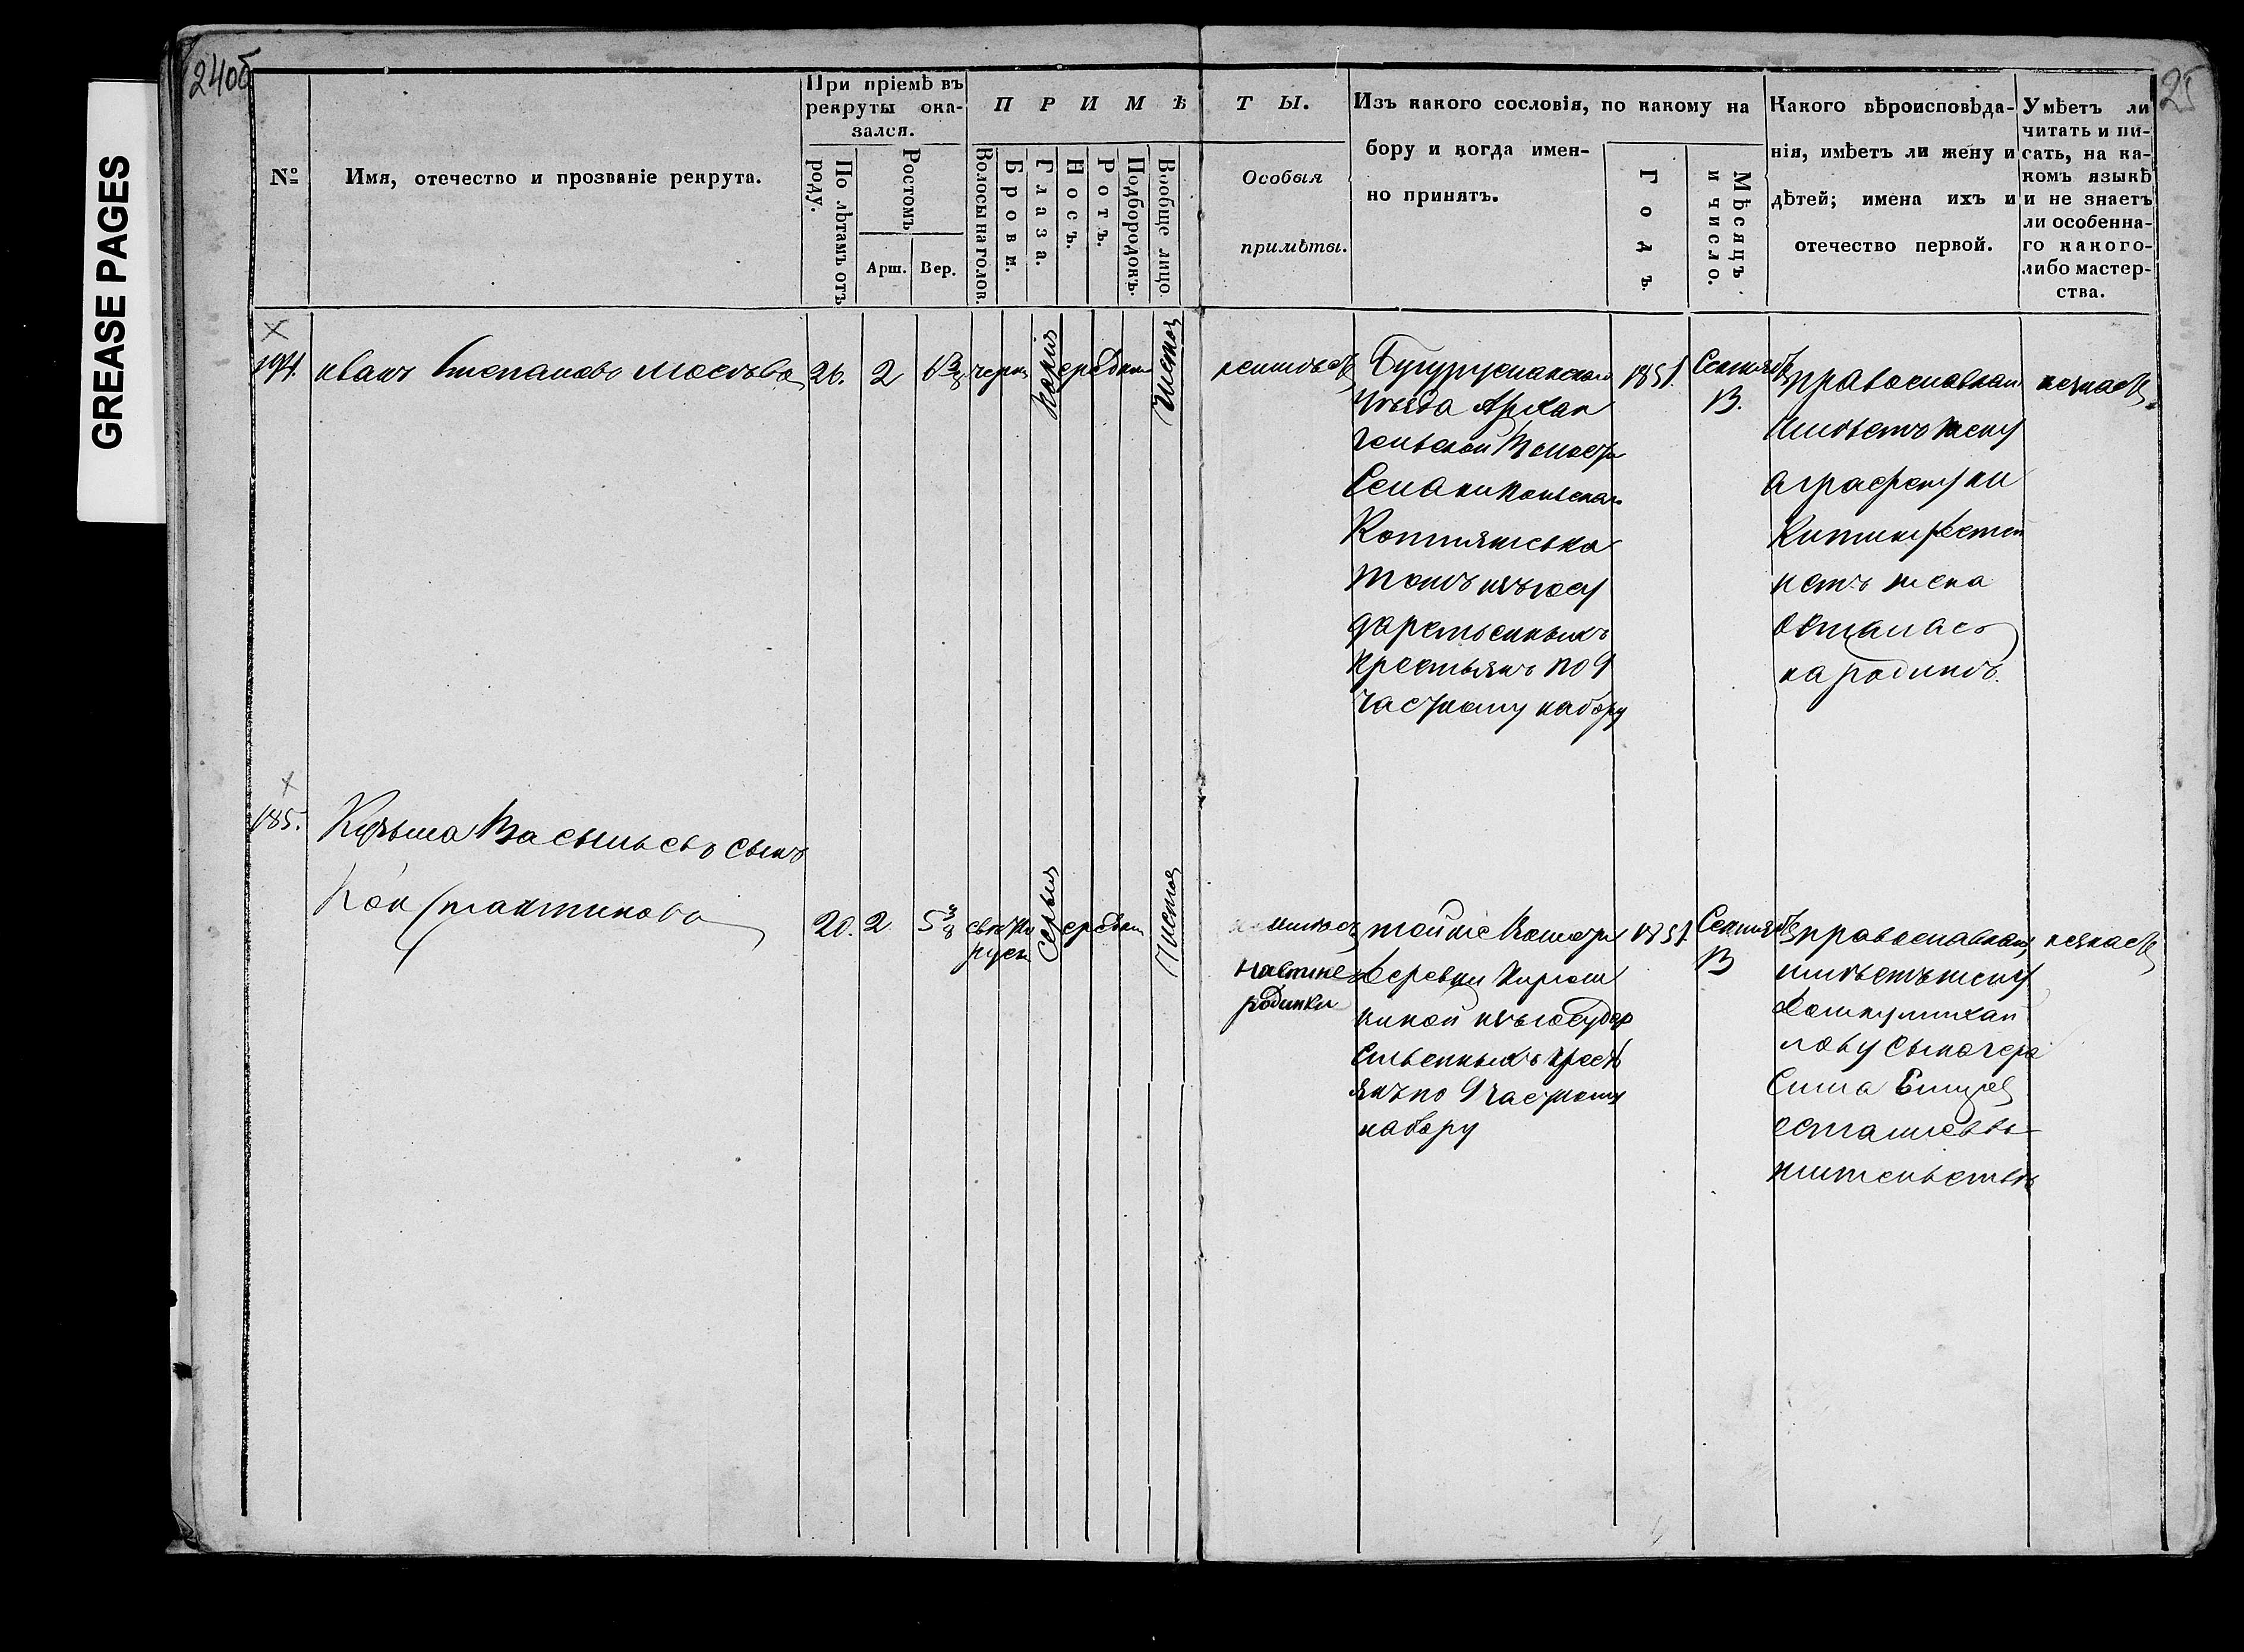 GREASE PAGES
24об
25
№
Имя, отечество и прозваніе рекрута.
При пріемѣ въ
рекруты ока-
зался.
По лѣтамъ отъ
роду.
Ростомъ
Арш.
Вер.
П Р И М Ѣ
Волосы на голов.
Брови.
Глаза.
Носъ.
Ротъ.
Подбородокъ.
Вообще лицо.
Т Ы.
Особыя
примѣты.
Изъ какого сословія, по какому на
бору и когда имен-
но принятъ.
Годъ.
Мѣсяцъ
и число.
Какого вѣроисповѣда-
нія, имѣетъ ли жену и
дѣтей; имена ихъ и
отечество первой.
Умѣетъ ли
читать и пи-
сать, на ка-
комъ языкѣ
и не знаетъ
ли особенна-
го какого-
либо мастер-
ства.
иванъ Степановъ
20. 2
черн
средни
чистое
неимѣетъ
Бугурусланскаго
Уѣзда Архан
гельской Волости
Села
изъ госу
дарственныхъ
крестьянъ по 9
частному набору
1851.
Сентяб
13.
православнаго
имѣетъ жену
аграфену ни
китину детей
нетъ жена
осталась
на родинѣ.
незнаетъ
185.
Кузьма Васильевъ сынъ
Константиновъ
20. 2 5 3/8
светло
русы
серыя
средни
чистое
имѣетъ
на спине
родинки
тойже Волости
деревни
изъ государ
ственныхъ кресть
янъ по 9 частному
набору
1851
Сентяб
13
православнаго,
имѣетъ жену
михай
лову сына гера
сима
остались въ
жительствѣ
незнаетъ